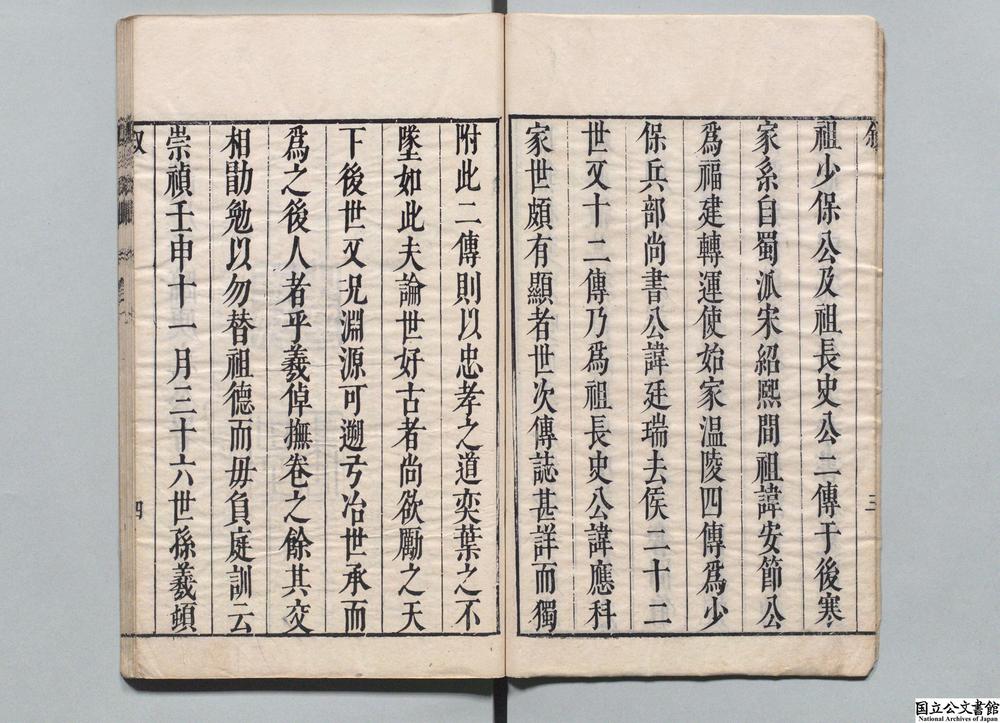 敘
三
祖少保公及祖長史公二傳于後寒
家系自蜀派宋紹熙間祖諱安節公
爲福建轉運使始家温陵四傳爲少
保兵部尚書公諱廷瑞去侯二十二
世又十二傳乃爲祖長史公諱應科
家世頗有顯者世次傳誌甚詳而獨
附此二傳則以忠孝之道奕葉之不
墜如此夫論世好古者尚欲勵之天
下後世又况淵源可遡弓冶世承而
爲之後人者乎羲倬撫卷之餘其交
相勖勉以勿替祖德而毋負庭訓云
崇禎壬申十一月三十六世孫羲頓
叙
四
国立公文書館
National Archives of Japan